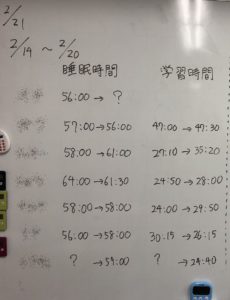 2/21
2/14 ~ 2/20
睡眠時間 学習時間
56:00→ ?
57:00→56:00 47:00→47:30
58:00→61:00 27:10→35:20
64:00→61:30 24:50→28:00
58:00→58:00 24:00→29:50
56:00→58:00 30:15→26:15
? →59:00 ? →24:40